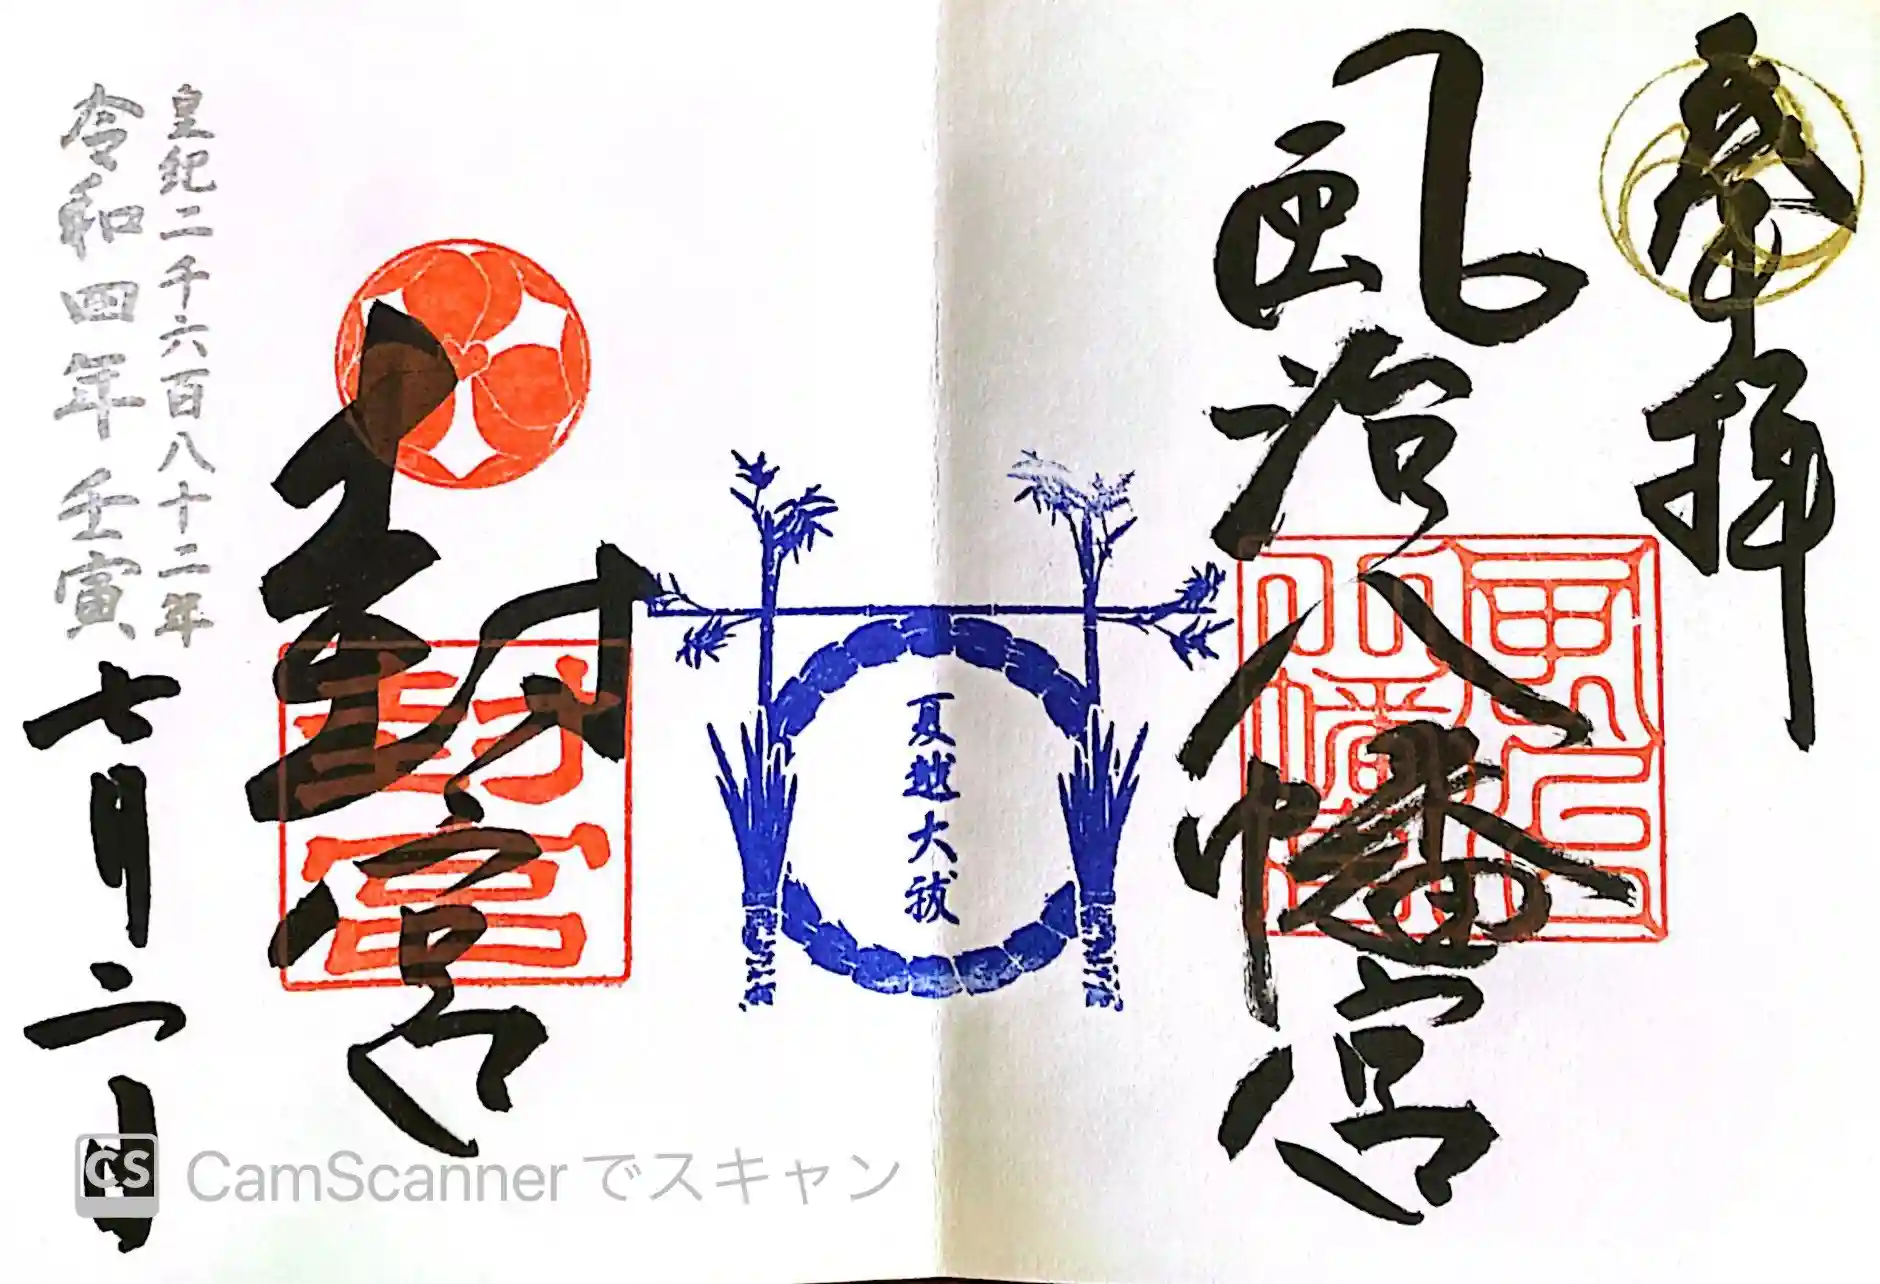 奉拝
風治八幡宮
風治
八幡宮
夏越大祓
封宮
封宮
皇紀二千六百八十二年
令和四年壬寅
七月二日
CS CamScannerでスキャン